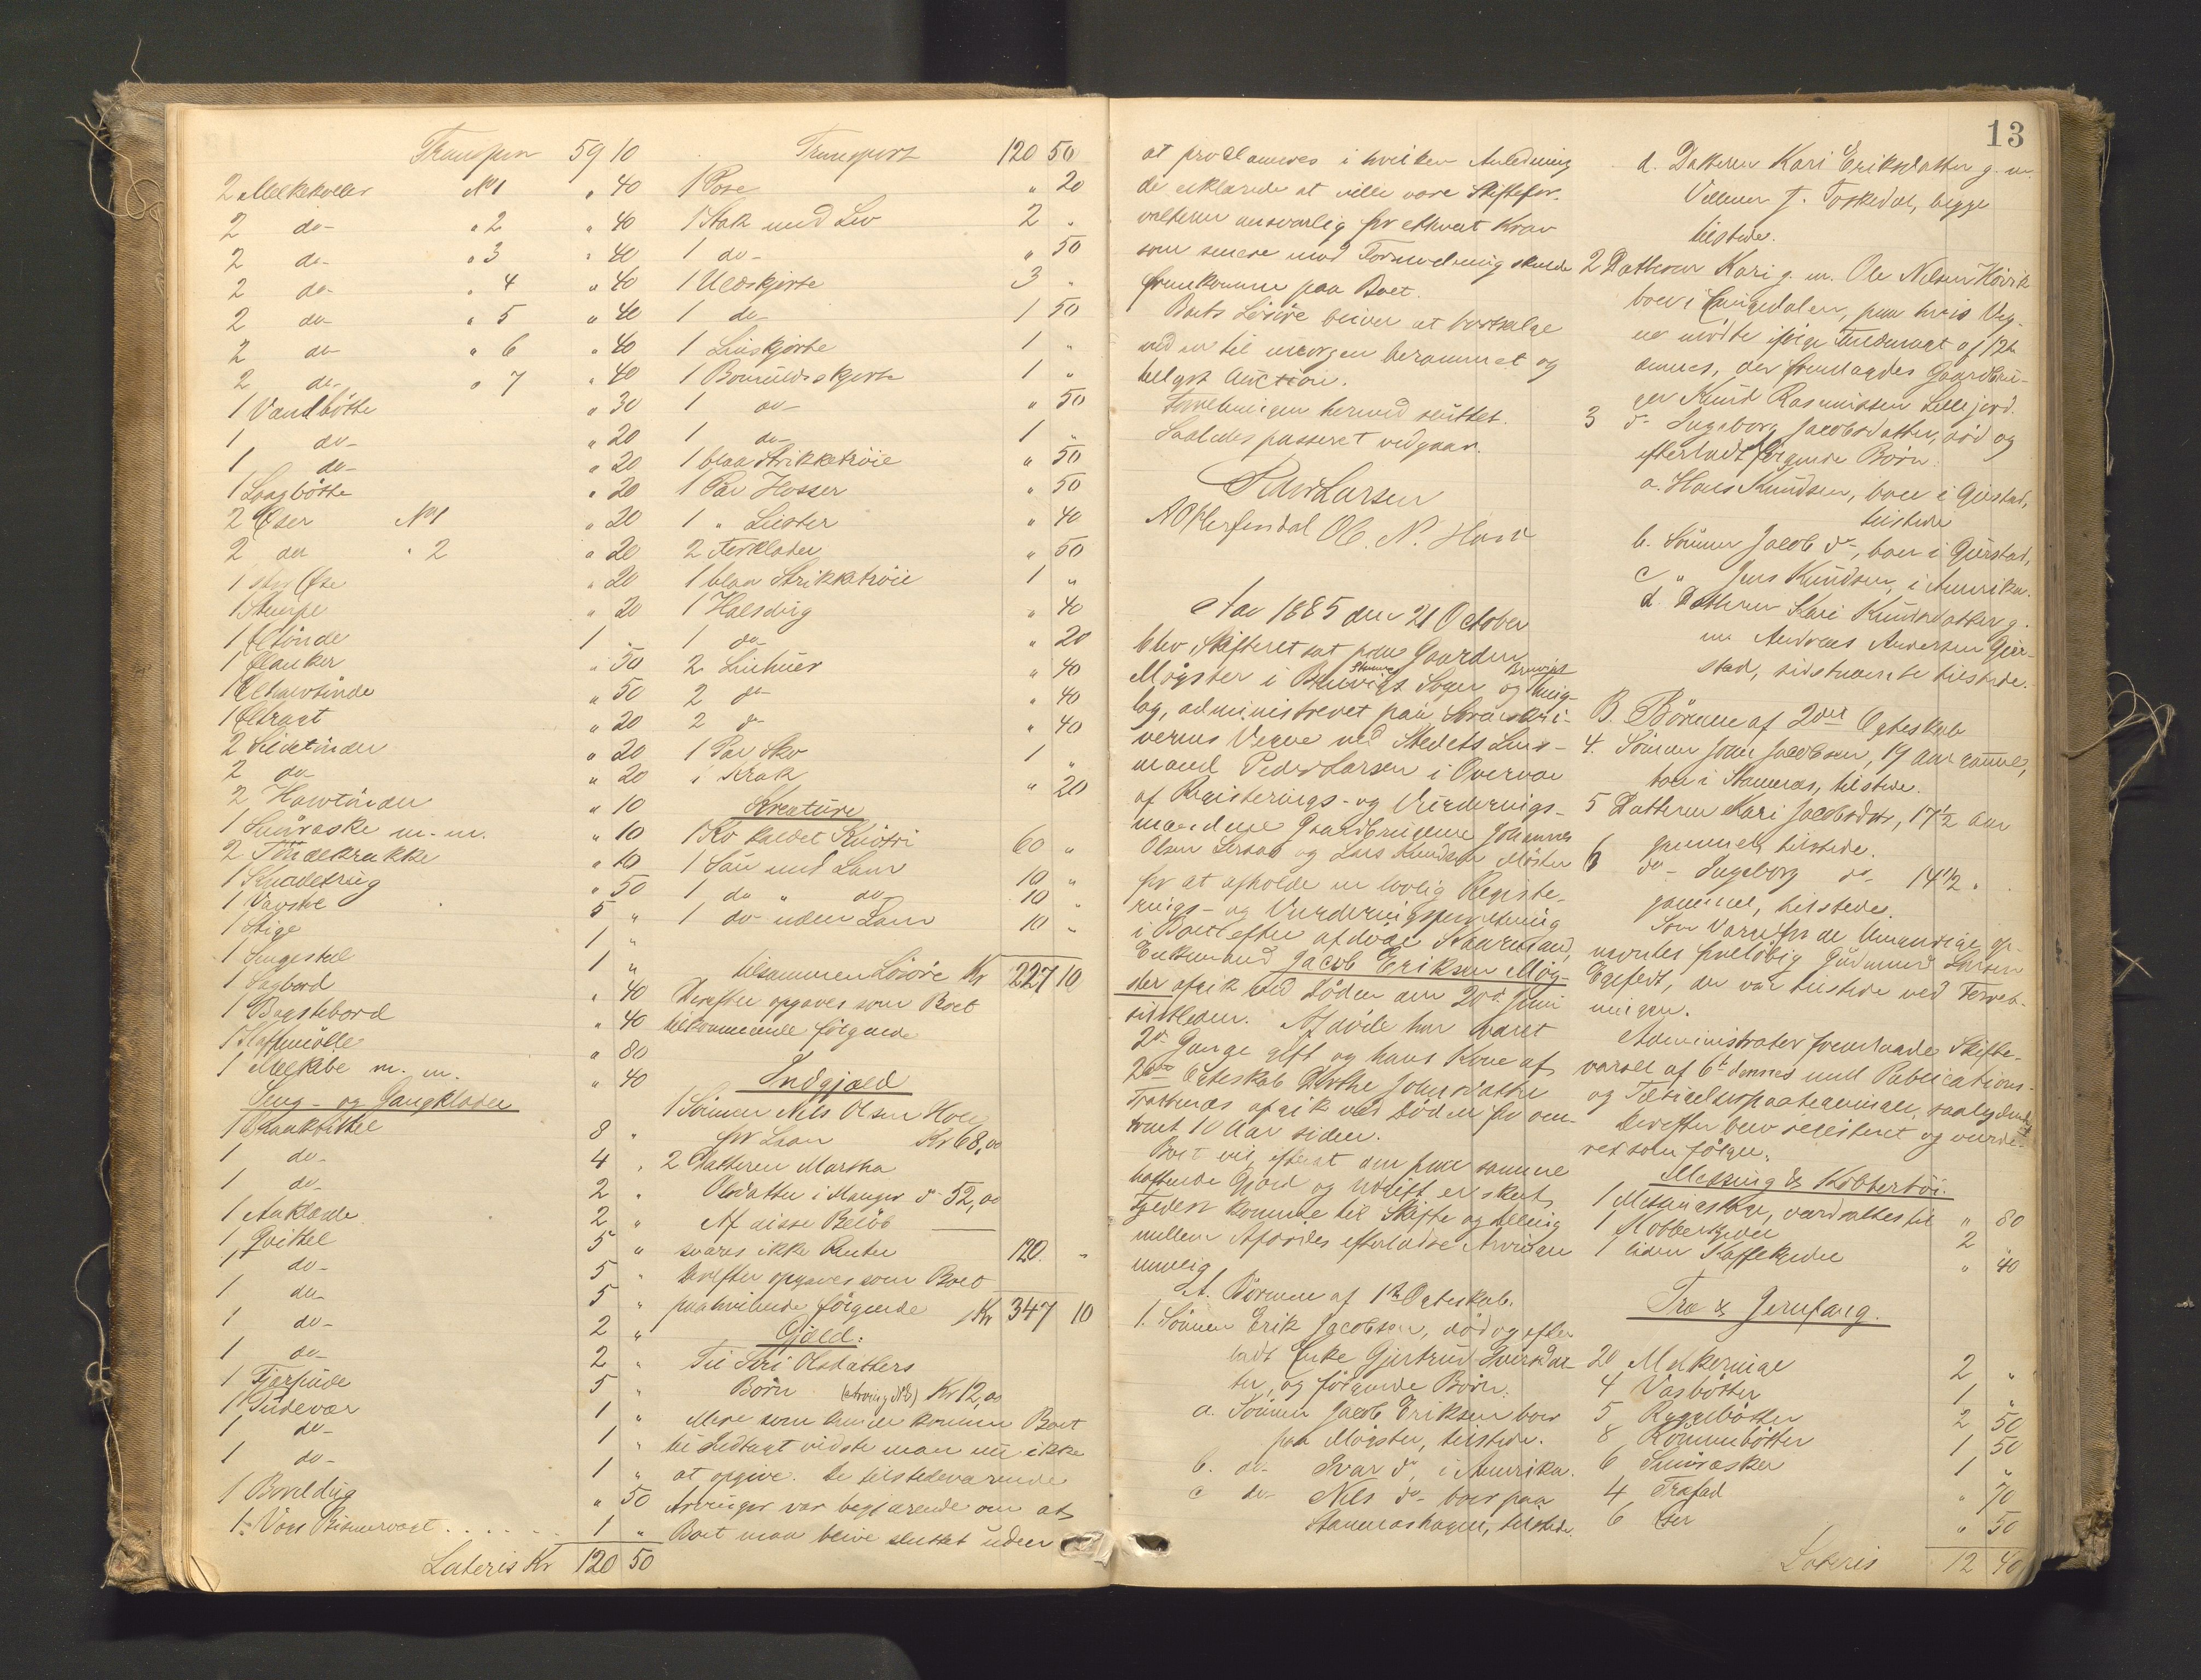 Transport 59 10
2 Melkekoller No 1 " 40
2 do- " 2 " 40
2 do- " 3 " 40
2 do " 4 " 40
2 do " 5 " 40
2 do " 6 " 40
2 do- " 7 " 40
1 Vandbötte " 30
1 do- " 20
1 do- " 20
1 Laagbötte " 20
2 Øser No 1 " 20
2 do " 2 " 20
1 Øse " 20
1 Stampe " 20
1 Øltönde 1 "
1 Ølanker " 50
1 Ølhalvtönde " 50
1 Øltragt " 20
2 Sildetönder " 20
2 do " 20
2 Halvtönder " 10
1 Smöræske m. m. " 10
2 Töndekrakke " 10
1 Knadetrug " 50
1 Vævstol 5 "
1 Stige 1 "
1 Sengested 1 "
1 Lagbord " 40
1 Bagstebord " 40
1 Kaffemölle " 80
1 Melkibe m. m. " 40
Seng- og Gangklæder
1 Graakittel 8 "
1 do- 4 "
1 do- 2 "
1 Aaklæde 2 "
1 Qvittel 5 "
1 do- 5 "
1 do 5 "
1 do- 2 "
1 do- 2 "
1 Fjærpude 5 "
1 Pudevær 1 "
1 do- 1 "
1 do- 1 "
1 Borddug " 50
1 Vog Bismervægt . . . . . . 1 "
Lateris Kr 120 50
Transport 120 50
1 Pose " 20
1 Stak med Liv 2 "
1 do- " 50
1 Uldskjorte 3 "
1 do- 1 50
1 Linskjorte 1 "
1 Bomuldsskjorte 1 "
1 do- " 50
1 do- 1 "
1 blaa Strikketröie " 50
1 Par Hosser " 50
1 " Lester " 40
2 Forklæder " 50
1 blaa Strikketröie 1 "
1 Halsdug " 40
1 do- " 20
2 Linhuer " 40
2 do " 40
2 do " 40
1 Par Sko 1 "
1 Krak " 20
Kreature
1 Ko kaldet 60 "
1 Sau med Lam 10 "
1 do " do 10 "
1 do uden Lam 10 "
tilsammen Lösöre Kr 227 10
Derefter opgaves som Boet
tilkommende følgende
Indgjæld
1 Sönnen Nils Olsen Hove
for Laan Kr 68,00
2 Datteren Martha
Olsdatter i Manger do 52,00
Af disse Belöb
svares ikke Renter 120. "
Derefter opgaves som Boet
paahvilende følgende Kr 347 10
Gjæld:
Til Siri Olsdatters
Börn (Arving No 3) Kr 12,00
Mere som kunde komme Boet
til Indtægt vidste man nu ikke
at opgive. De tilstedeværende
Arvinger var begjærende om at
Boet maa blive sluttet uden
at proclameres i hvilken Anledning
de erklærede at ville være Skiftefor-
valteren ansvarlig for ethvert Krav
som senere mod Formodning skulde
fremkomme paa Boet.
Boets Lösöre bliver at bortsælge
ved en til imorgen berammet og
lyst Auction.
Forretningen hermed sluttet.
Saaledes passeret vedgaar.
Peder Larsen
Ol. N. Hove
Aar 1885 den 21 October
blev Skifteret sat paa Gaarden
Møgster i Sogn og Thing-
lag, administreret paa Sorenskri-
verens Vegne ved Stedets Lens-
mand Peder Larsen i Overvær
af Registerings- og Vurderings-
mændene Gaardbrugerne Johannes
Olsen og Lars Knudsen Møster
for at afholde en lovlig Registe-
rings- og Vurderingsforretning
i Boet efter afdøde Kaarmand,
Enkemand Jacob Eriksen Møg-
ster afgik ved Döden den 20de Juni
sidstleden. Afdöde har været
2de Gange gift og hans Kone af
2det Ægteskab Dorthe Johnsdatter
afgik ved Döden for om-
trent 10 Aar siden.
Boet vil, efterat den paa samme
hæftende Gjæld og Udgift er skeet
Fyldest komme til Skifte og Deling
mellem Afdødes efterladte Arvinger
nemlig
A. Börnene af 1ste Ægteskab.
1. Sönnen Erik Jacobsen, död og efter
ladt Enke Gjertrud Iversdat-
ter, og følgende Börn:
a. Sönnen Jacob Eriksen boer
paa Møgster, tilstede.
b. do- Ivar do, i Amerika.
c do- Nils do- boer paa
Stamneshagen, tilstede.
13
d. Datteren Kari Eriksdatter g. m.
Villum J. Toskedal, begge
tilstede.
2 Datteren Kari g. m. Ole Nelsen Hövik
boer i Eksingedalen, paa hvis Veg-
ne mödte ifølge Fuldmagt af 12te
dennes, der fremlagdes Gaardbru-
ger Knud Rasmussen Lillejord.
3 do- Ingeborg Jacobsdatter, död og
efterladt følgende Börn:
a. Hans Knudsen, boer i Gjerstad,
tilstede
b. Sönnen Jacob do-, boer i Gjerstad,
c " Jens Knudsen, i Amerika.
d. Datteren Kari Knudsdatter g.
m. Andreas Andersen Gjer-
stad, sidstnævnte tilstede.
B. Börnene af 2det Ægteskab
4. Sönnen John Jacobsen, 19 Aar gammel,
boer i Stamnes, tilstede.
5 Datteren Kari Jacobsdtr, 17½ Aar
gammel, tilstede.
6 do- Ingeborg do- 14½ "
gammel, tilstede.
Som Værge for de Umyndige op-
nævntes foreløbig Gudmund Larsen
Eyefest, der var tilstede ved Forret-
ningen.
Administrator fremlagde Skifte-
varsel af 6te dennes med Publications-
og Tætigelsespaategninger, saalydende
Derefter blev registeret og vurde-
ret som følger.
Messing & Kobbertöi.
1 Messingstage, værdsattes til " 80
1 Kobberkjedel 2 "
1 liden Kaffekjedel " 40
Træ & Jernfang.
20 Melkeringe 2 "
4 Vasbötter 1 "
5 Ryggebötter 2 50
8 Römmebötter 1 50
6 Smöræsker 1 "
4 Træfad " 70
6 Øser " 50
Lateris 12 40